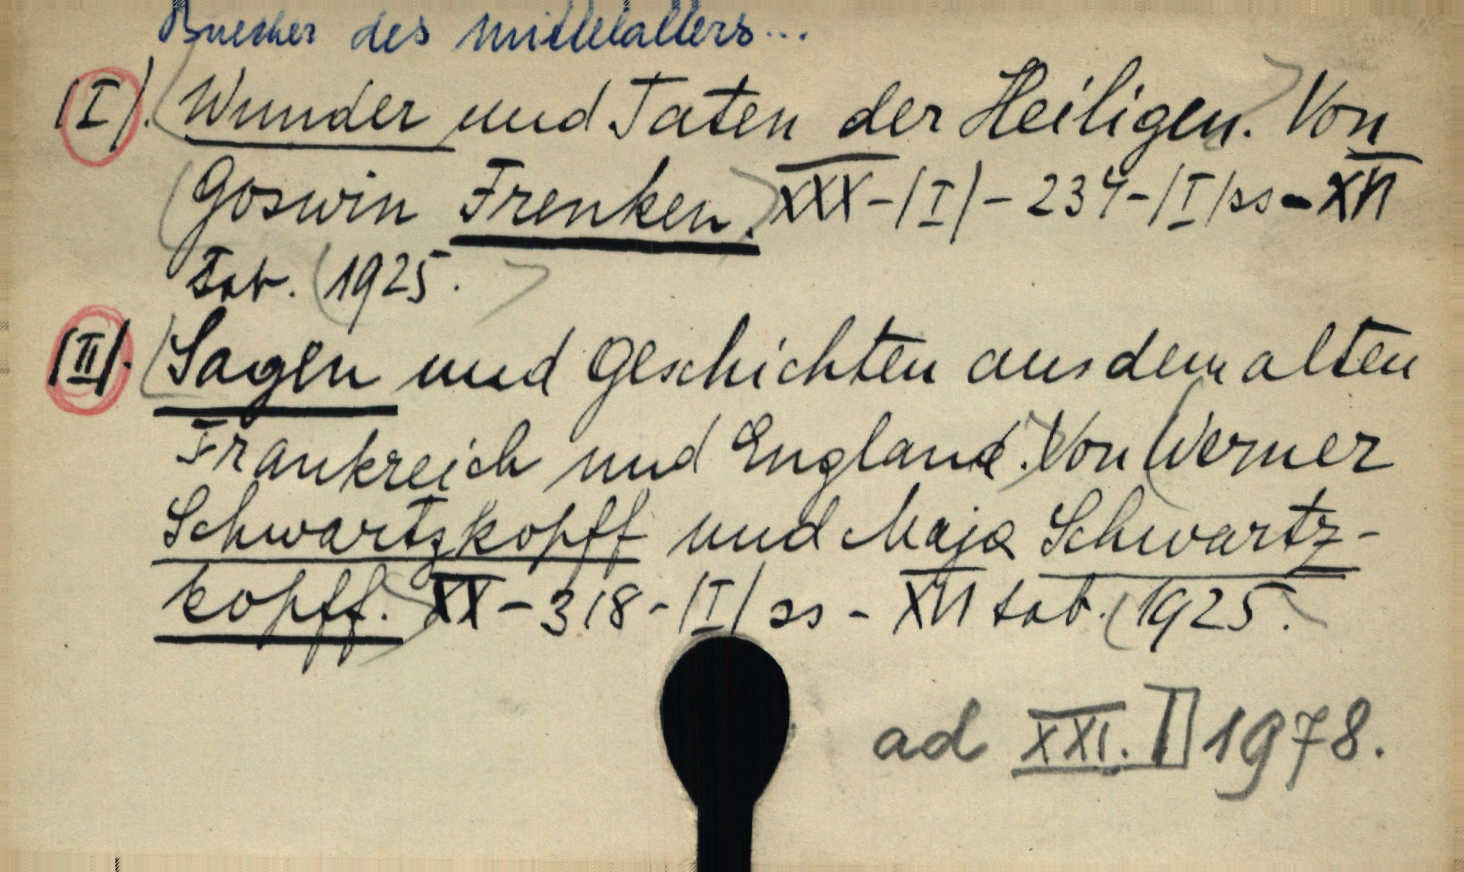 Buecher des Mittelalters...
(I). Wunder und Taten der Heiligen. Von
Goswin Frenken. XXX-|I|-234-|I|ss-XVI
Tab. 1925.
|II|. Sagen und Geschichten aus dem alten
Frankreich und England. Von Werner
Schwartzkopff und Maja Schwartz-
kopff. XX-318-|I|ss-XVI tab. 1925.
ad XXI. 1978.